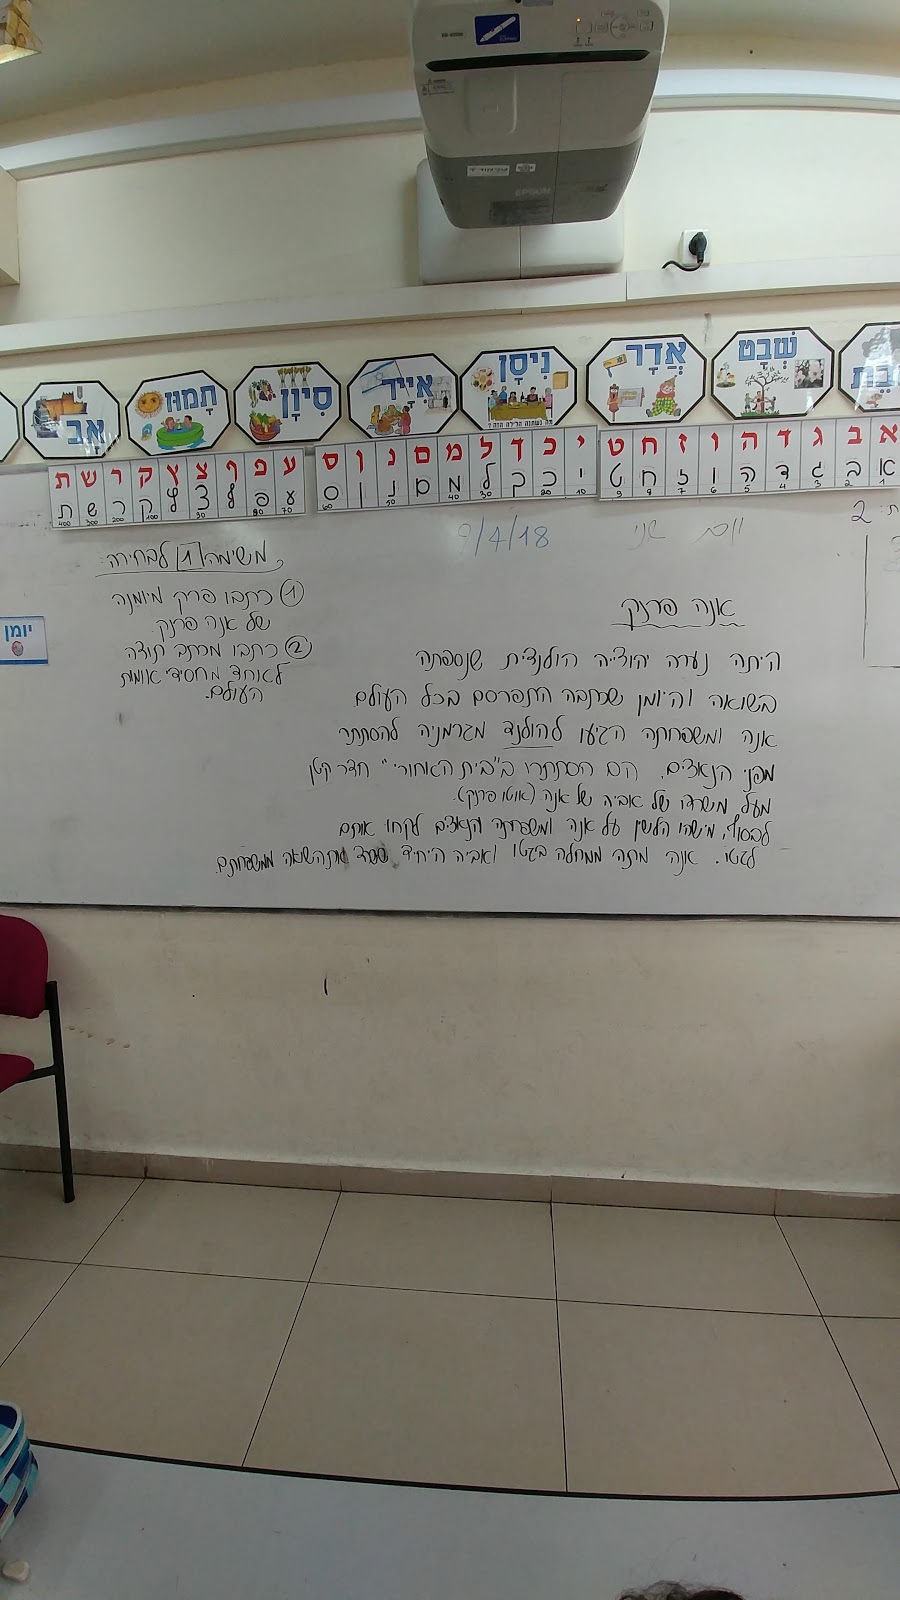 EPSON
שְׁבָט
אֲדָר
נִיסָן
מה נשתנה הלילה הזה?
אייר
סִיוָן
תַמוּז
אָב
א ב ג ד ה ו ז ח ט
א ב ג ד ה ו ז ח ט
1 2 3 4 5 6 7 8 9
י כ ך ל מ ם נ ן ס
י כ ך ל מ ם נ ן ס
10 20 30 40 50 60
ע פ ף צ ץ ק ר ש ת
ע פ ף צ ץ ק ר ש ת
70 80 90 100 200 300 400
יום שני
9/4/18
2
אנה פרנק
היתה נערה יהודיה הולנדית שנספתה
בשואה והיומן שכתבה התפרסם בכל העולם
אנה ומשפחתה הגיעו להולנד מגרמניה להסתתר
מפני הנאצים. הם הסתתרו ב"בית האחורי" חדר קטן
מעל משרדו של אביה של אנה (אוטו פרנק).
לבסוף, מישהו הלשין על אנה ומשפחתה והנאצים לקחו אותם
לגטו. אנה מתה ממחלה בגטו ואביה היחיד ששרד את השואה ממשפחתם.
משימה 1 לבחירה:
① כתבו פרק מיומנה
של אנה פרנק.
② כתבו מכתב תודה
לאחד מחסידי אומות
העולם.
יומן